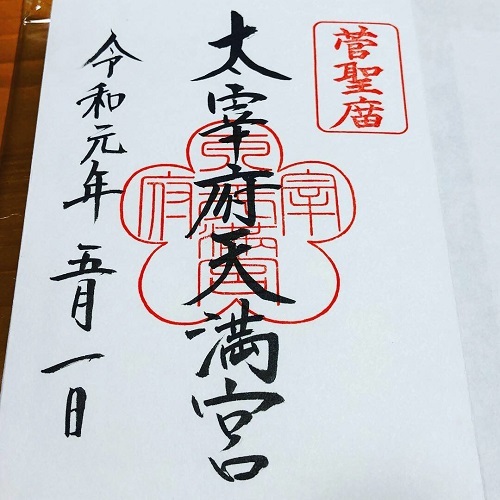 菅聖廟
太宰府天満宮
令和元年五月一日